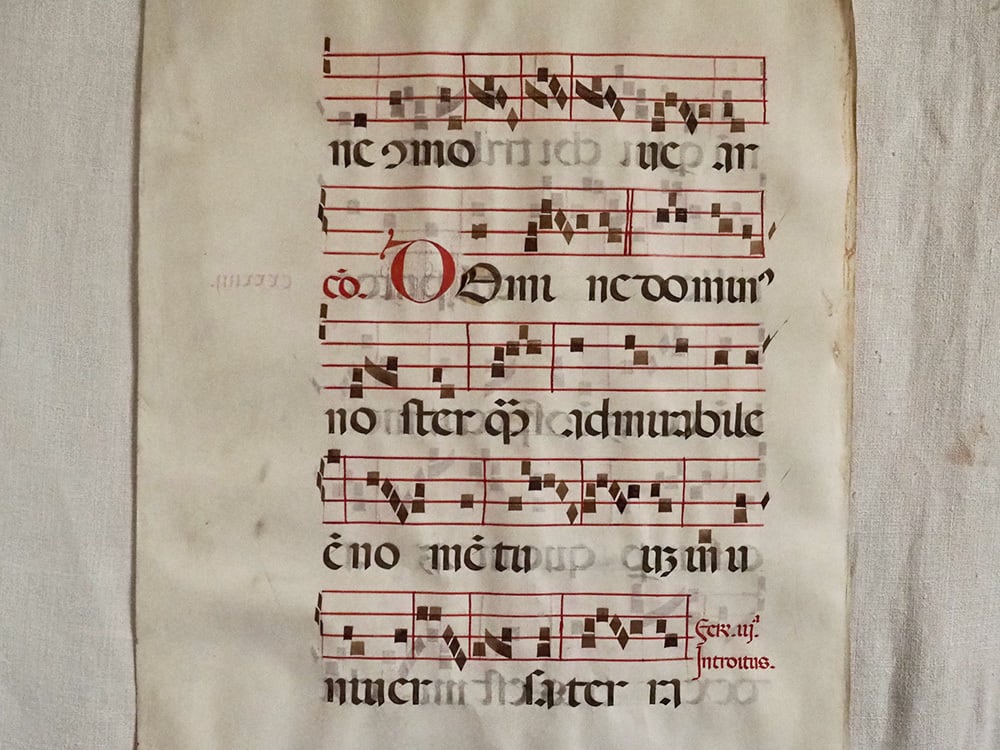 ne ɔmo ue ar
cō. DOmi ne dominꝰ
no ster qm̄ admirabile
ē no mē tu uʒ in u
niuer sa ter ra
Fer. iij.ª
Introitus.